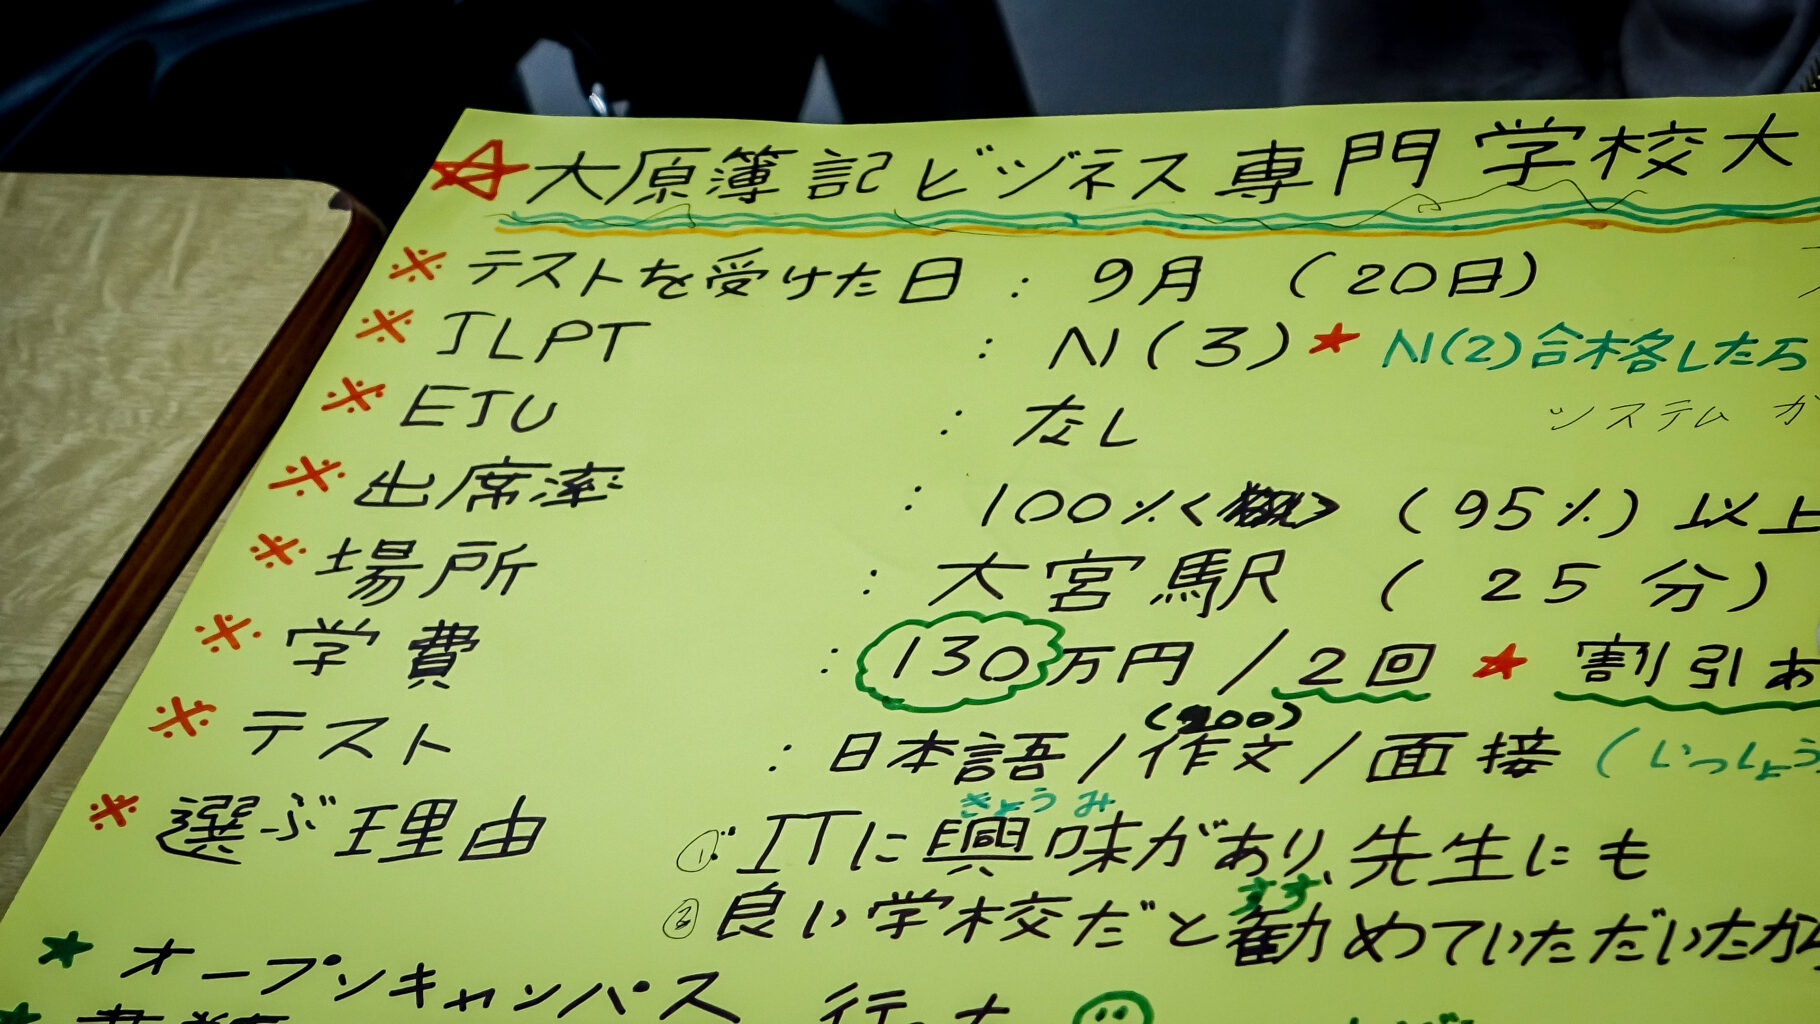 ☆大原簿記ビジネス専門学校大
※テストを受けた日 : 9月 (20日)
※JLPT : N(3)★ N(2)合格したら
※EJU : なし
システム か
※出席率 : 100%< > (95%)以上
※場所 : 大宮駅 (25分)
※学費 : 130万円/2回 ★ 割引あ
※テスト : 日本語/作文(200)/面接 (いっしょう
※選ぶ理由 ① ITに興味があり、先生にも
きょうみ
② 良い学校だと勧めていただいたから
すす
★オープンキャンパス 行った